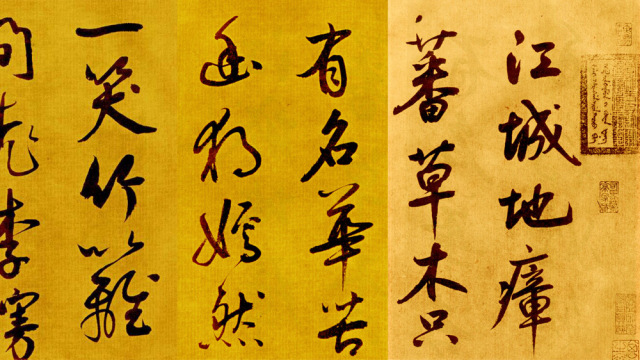 江城地瘴
蕃草木只
有名華苦
幽獨嫣然
一笑竹籬
間桃李漫